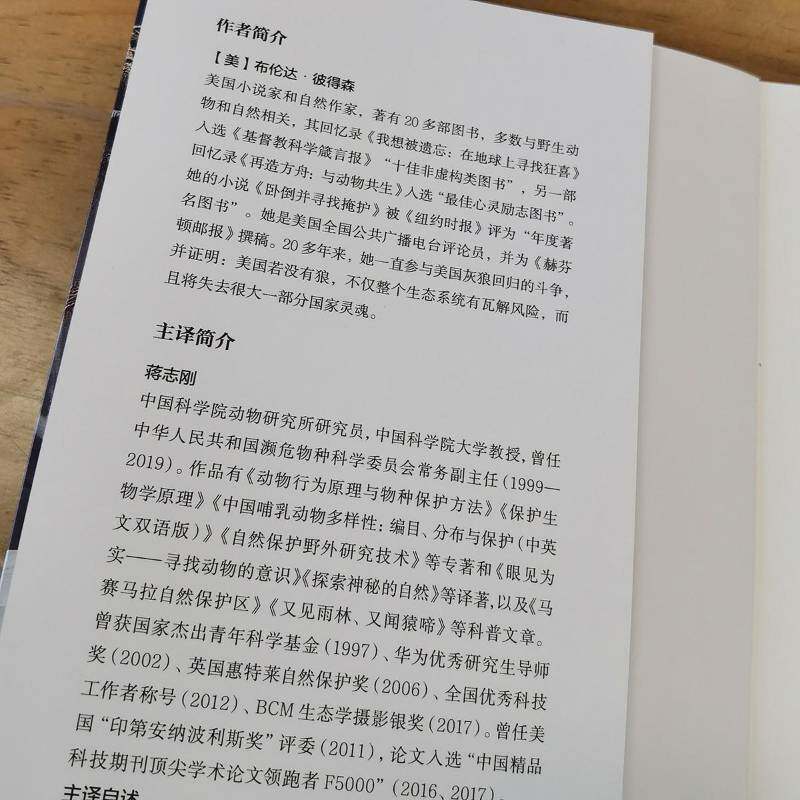 作者简介
【美】布伦达·彼得森
美国小说家和自然作家，著有20多部图书，多数与野生动
物和自然相关，其回忆录《我想被遗忘：在地球上寻找狂喜》
入选《基督教科学箴言报》“十佳非虚构类图书”，另一部
回忆录《再造方舟：与动物共生》入选“最佳心灵励志图书”。
她的小说《卧倒并寻找掩护》被《纽约时报》评为“年度著
名图书”。她是美国全国公共广播电台评论员，并为《赫芬
顿邮报》撰稿。20多年来，她一直参与美国灰狼回归的斗争，
并证明：美国若没有狼，不仅整个生态系统有瓦解风险，而
且将失去很大一部分国家灵魂。
主译简介
蒋志刚
中国科学院动物研究所研究员，中国科学院大学教授，曾任
中华人民共和国濒危物种科学委员会常务副主任(1999—
2019)。作品有《动物行为原理与物种保护方法》《保护生
物学原理》《中国哺乳动物多样性：编目、分布与保护(中英
文双语版)》《自然保护野外研究技术》等专著和《眼见为
实——寻找动物的意识》《探索神秘的自然》等译著，以及《马
赛马拉自然保护区》《又见雨林、又闻猿啼》等科普文章。
曾获国家杰出青年科学基金(1997)、华为优秀研究生导师
奖(2002)、英国惠特莱自然保护奖(2006)、全国优秀科技
工作者称号(2012)、BCM生态学摄影银奖(2017)。曾任美
国“印第安纳波利斯奖”评委(2011)，论文入选“中国精品
科技期刊顶尖学术论文领跑者F5000”(2016、2017)。
主译自述